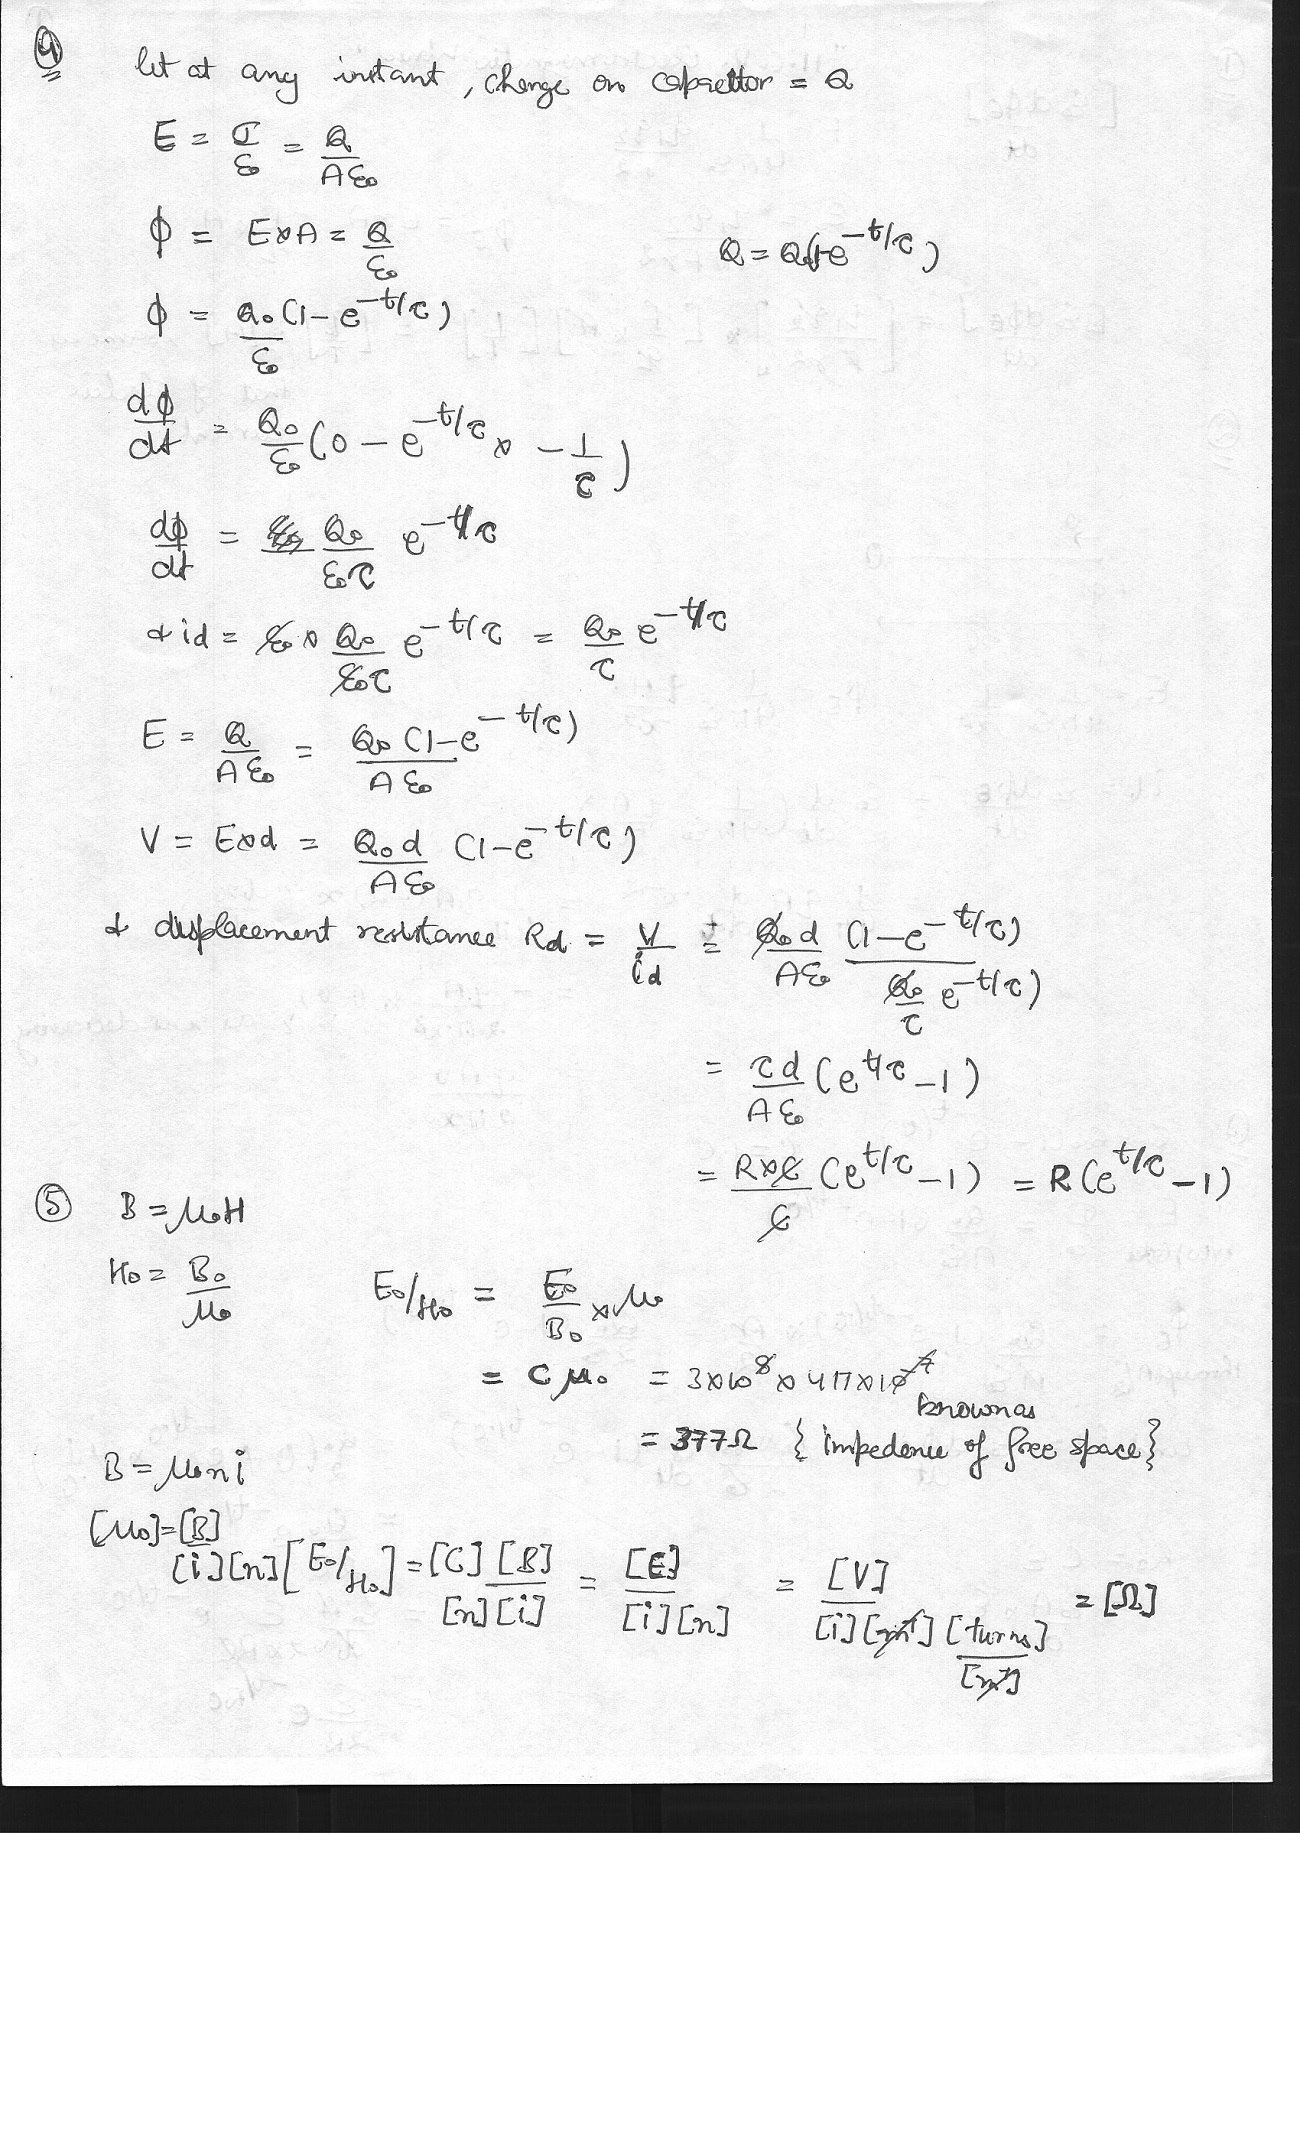 4
let at any instant, charge on capacitor = Q
E = σ/ε₀ = Q/Aε₀
ϕ = E×A = Q/ε₀
Q = Q₀(1-e^-t/τ)
ϕ = Q₀/ε₀ (1-e^-t/τ)
dϕ/dt = Q₀/ε₀ (0 - e^-t/τ × -1/τ)
dϕ/dt = Q₀/ε₀τ e^-t/τ
& id = ε₀ × Q₀/ε₀τ e^-t/τ = Q₀/τ e^-t/τ
E = Q/Aε₀ = Q₀(1-e^-t/τ)/Aε₀
V = E×d = Q₀d/Aε₀ (1-e^-t/τ)
& displacement resistance Rd = V/id = Q₀d/Aε₀ (1-e^-t/τ)/(Q₀/τ e^-t/τ)
= τd/Aε₀ (e^t/τ - 1)
= R×C/C (e^t/τ - 1) = R(e^t/τ - 1)
5 B = μ₀H
H₀ = B₀/μ₀ E₀/H₀ = E₀/B₀ × μ₀
= Cμ₀ = 3×10^8 × 4π×10^-7
= 377Ω { known as impedence of free space}
B = μ₀ni
[μ₀] = [B]/[i][n] [E₀/H₀] = [C][B]/[n][i] = [E]/[i][n] = [V]/[i][m][turns]/[m] = [Ω]